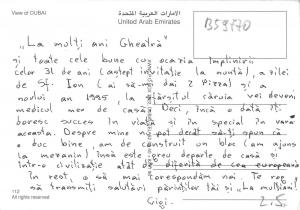 View of DUBAI
الإمارات العربية المتحدة
United Arab Emirates
B59770
„La mulți ani Gheatră"
și toate cele bune cu ocazia împlinirii
celor 31 de ani (aștept invitație la nuntă), a zilei
de Sf. Ion (ai să-mi dai 2 Pizza) și a
noului an 1995 la sfârșitul căruia vei deveni
medicul mer de casă. Deci, încă o dată îți
doresc succes în viață și în special în vara
aceasta. Despre mine pot decât să-ți spun că
o duc bine, am de construit un bloc (am ajuns
la mezanin) însă este greu departe de casă și
într-o civilizație atât de diferită de cea europeană
În rest, o să mai corespondăm noi. Te rog
să transmiți salutări părinților tăi și „La mulți ani!"
112
Gigi.
2.5